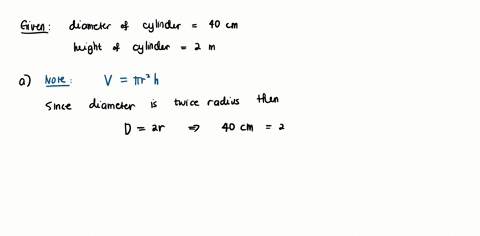 Given: diameter of cylinder = 40 cm
height of cylinder = 2 m
a) Note: V = πr²h
Since diameter is twice radius then
D = 2r ⇒ 40 cm = 2